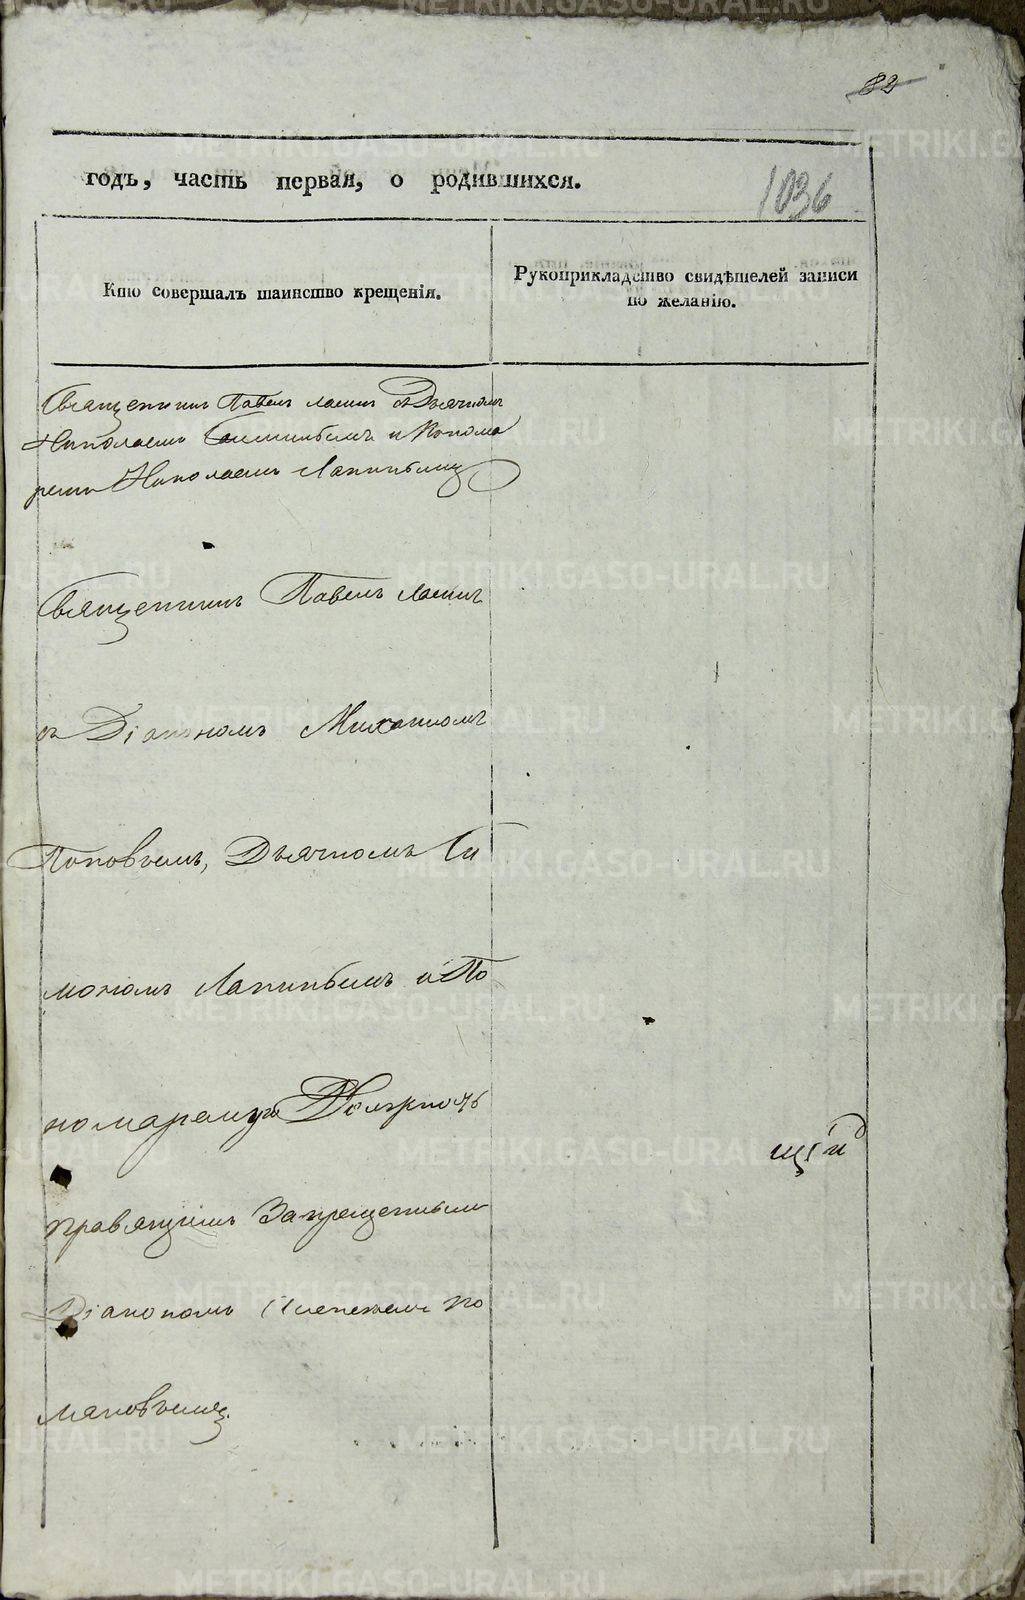 82
годъ, часть первая, о родившихся.
1036
Кто совершалъ таинство крещенія.
Рукоприкладство свидѣтелей записи
по желанію.
Священникъ Павелъ съ Дьячкомъ
Николаемъ и Понома
ремъ Николаемъ Лапинымъ
Священникъ Павелъ
съ Діакономъ Михаиломъ
Поповымъ, Дьячкомъ Си
мономъ Лапинымъ и По
номарскую Должность
правящимъ Запрещеннымъ
Діакономъ
METRIKI.GASO-URAL.RU